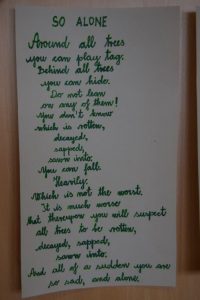 SO ALONE
Around all trees
you can play tag.
Behind all trees
you can hide.
Do not lean
on any of them!
You don't know
which is rotten,
decayed,
sapped,
sawn into.
You can fall.
Heavily.
Which is not the worst.
It is much worse
that thereupon you will suspect
all trees to be rotten,
decayed, sapped,
sawn into.
And all of a sudden you are
so sad, and alone.